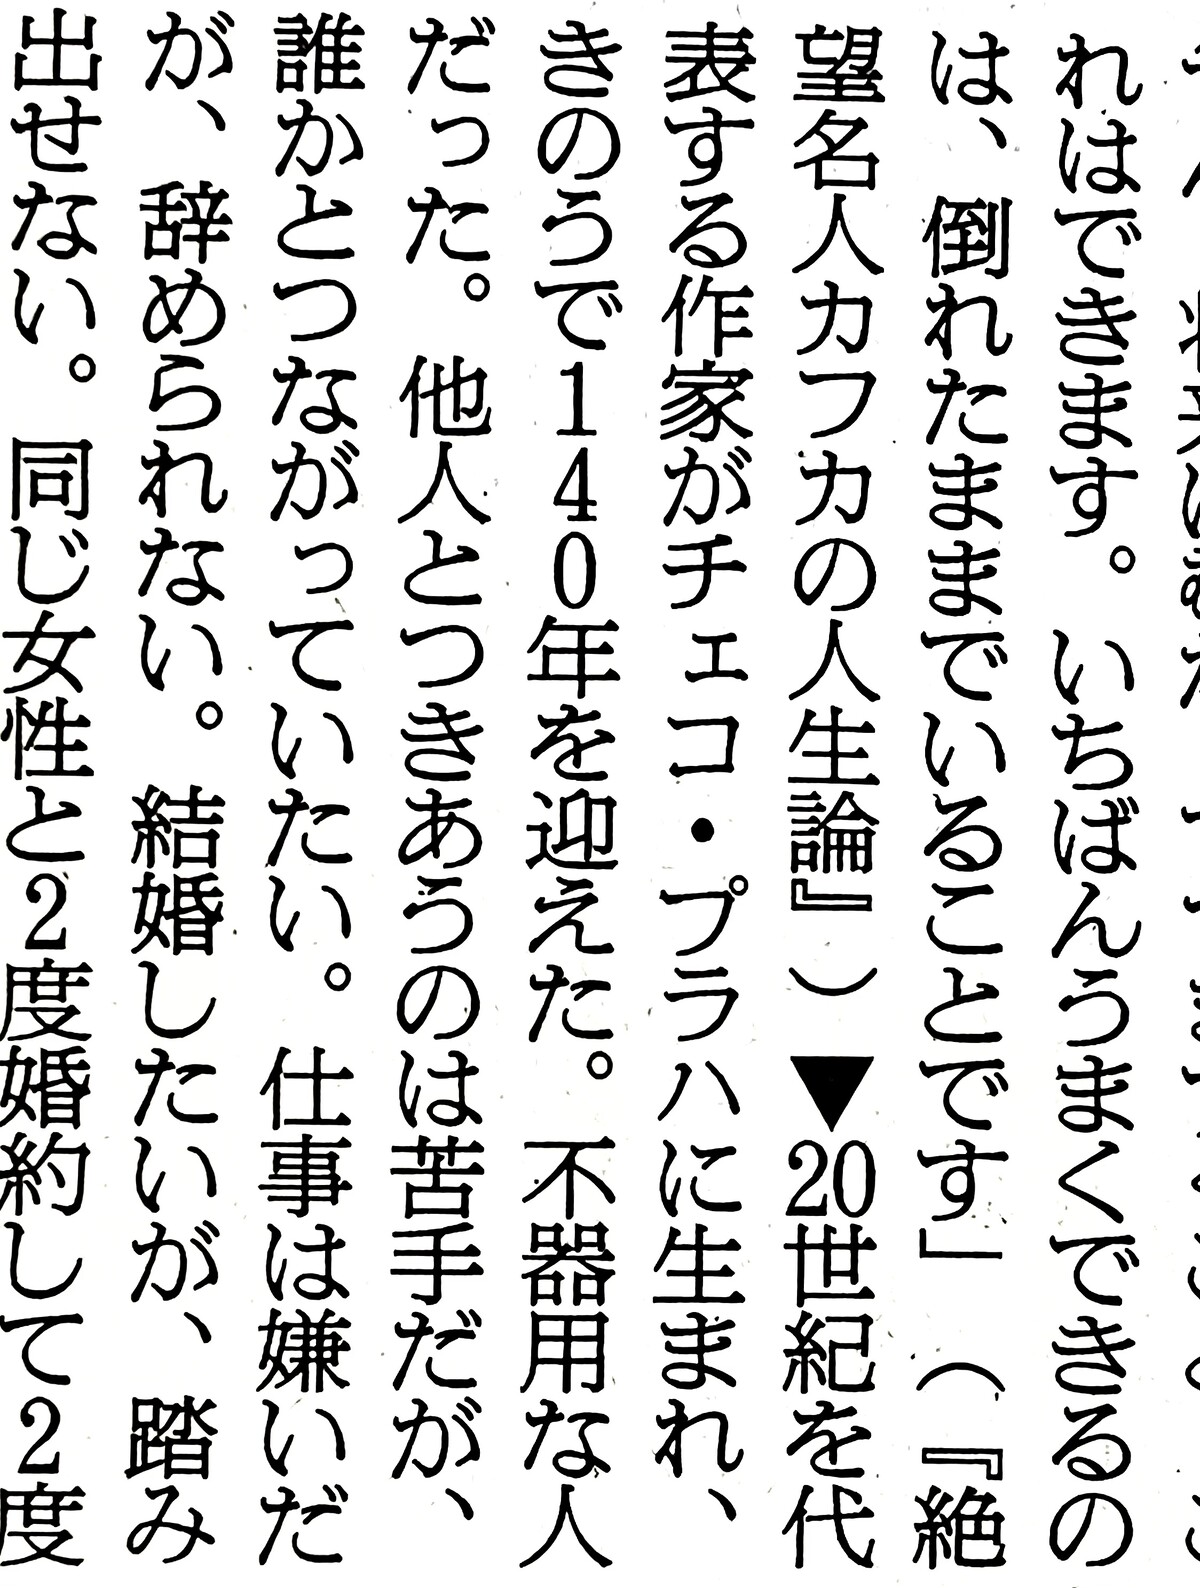 れはできます。いちばんうまくできるの
は、倒れたままでいることです」（『絶
望名人カフカの人生論』）▼20世紀を代
表する作家がチェコ・プラハに生まれ、
きのうで140年を迎えた。不器用な人
だった。他人とつきあうのは苦手だが、
誰かとつながっていたい。仕事は嫌いだ
が、辞められない。結婚したいが、踏み
出せない。同じ女性と2度婚約して2度